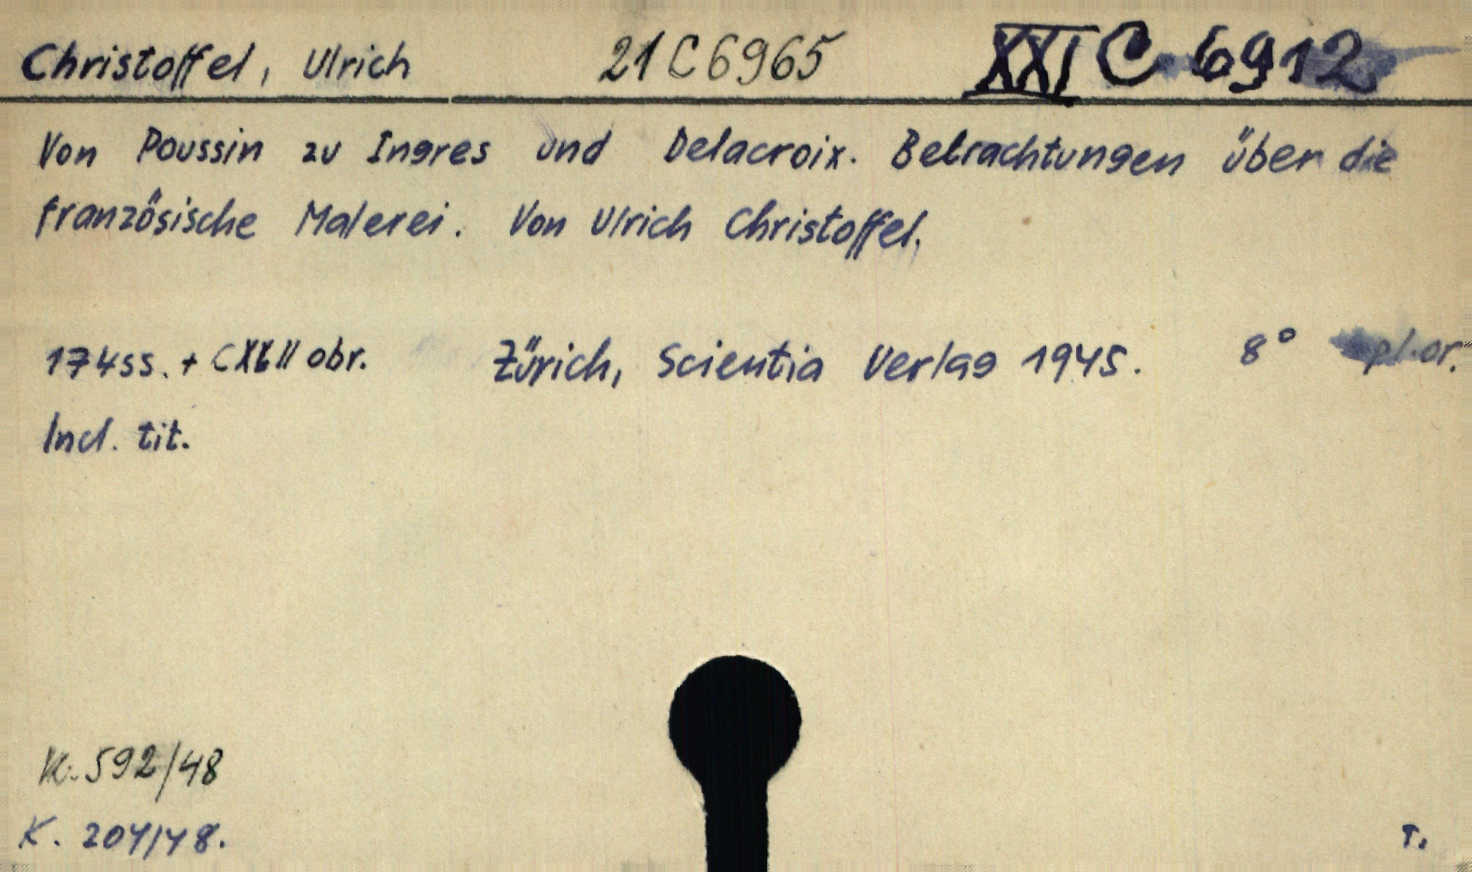 Christoffel, Ulrich 21 C 6965 XXI C 6912
Von Poussin zu Ingres und Delacroix. Betrachtungen über die
französische Malerei. Von Ulrich Christoffel.
174ss. + obr. Zürich, Scientia Verlag 1945. 8° pl.or.
Incl. tit.
K. 592/48
K. 204/48.
T.